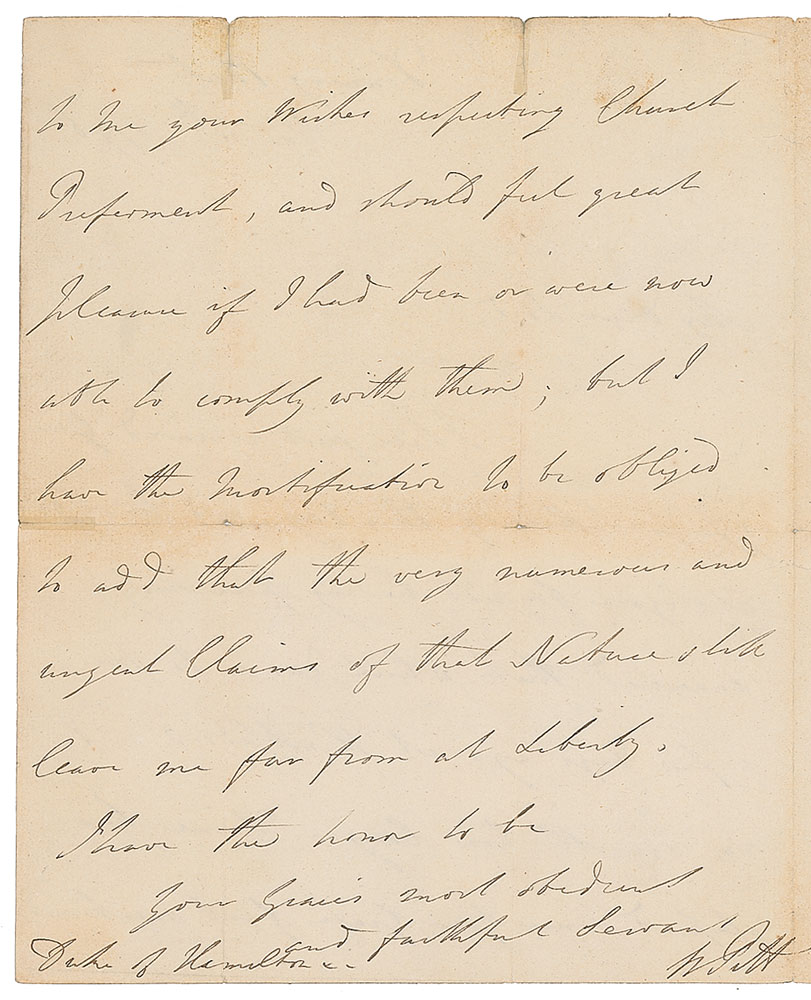 to me your Wishes respecting Church
Preferment, and should feel great
pleasure if I had been or were now
able to comply with them; but I
have the Mortification to be obliged
to add that the very numerous and
urgent Claims of that Nature still
leave me far from at Liberty.
I have the honor to be
Your Grace's most obedient
and faithful Servant
Duke of Hamilton &c.
W Pitt